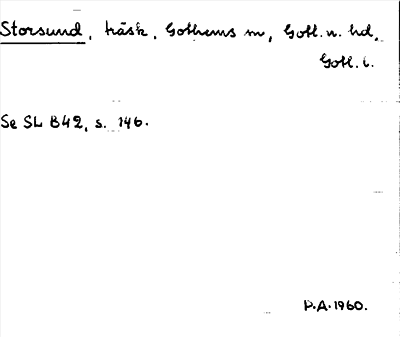 Storsund, träsk, Gothems m, Gotl. n. hd,
Gotl. l.
Se SL B42, s. 146.
P.A. 1960.